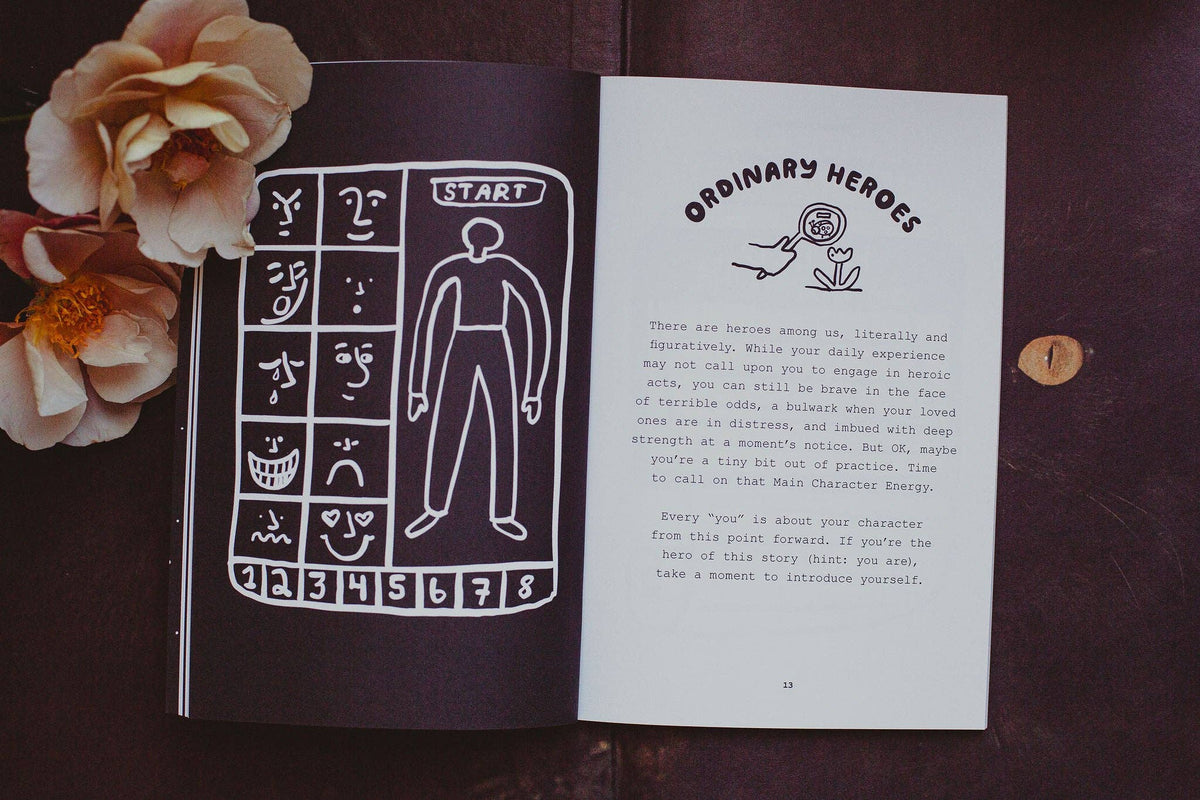 START
1 2 3 4 5 6 7 8
ORDINARY HEROES
There are heroes among us, literally and
figuratively. While your daily experience
may not call upon you to engage in heroic
acts, you can still be brave in the face
of terrible odds, a bulwark when your loved
ones are in distress, and imbued with deep
strength at a moment’s notice. But OK, maybe
you’re a tiny bit out of practice. Time
to call on that Main Character Energy.
Every “you” is about your character
from this point forward. If you’re the
hero of this story (hint: you are),
take a moment to introduce yourself.
13